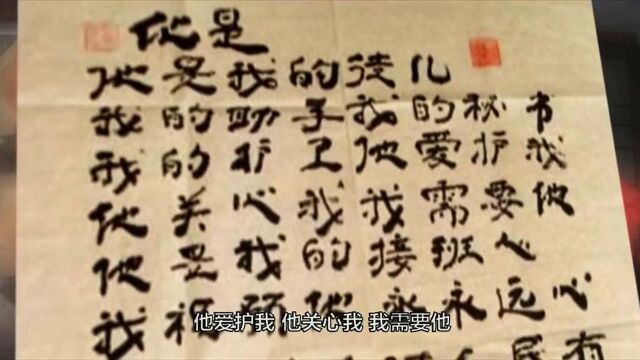 他是
他是我的徒儿
我的助手我的秘书
我的护卫他爱护我
他关心我我需要他
他是我的接班人
我祝他永永远
他爱护我 他关心我 我需要他
有